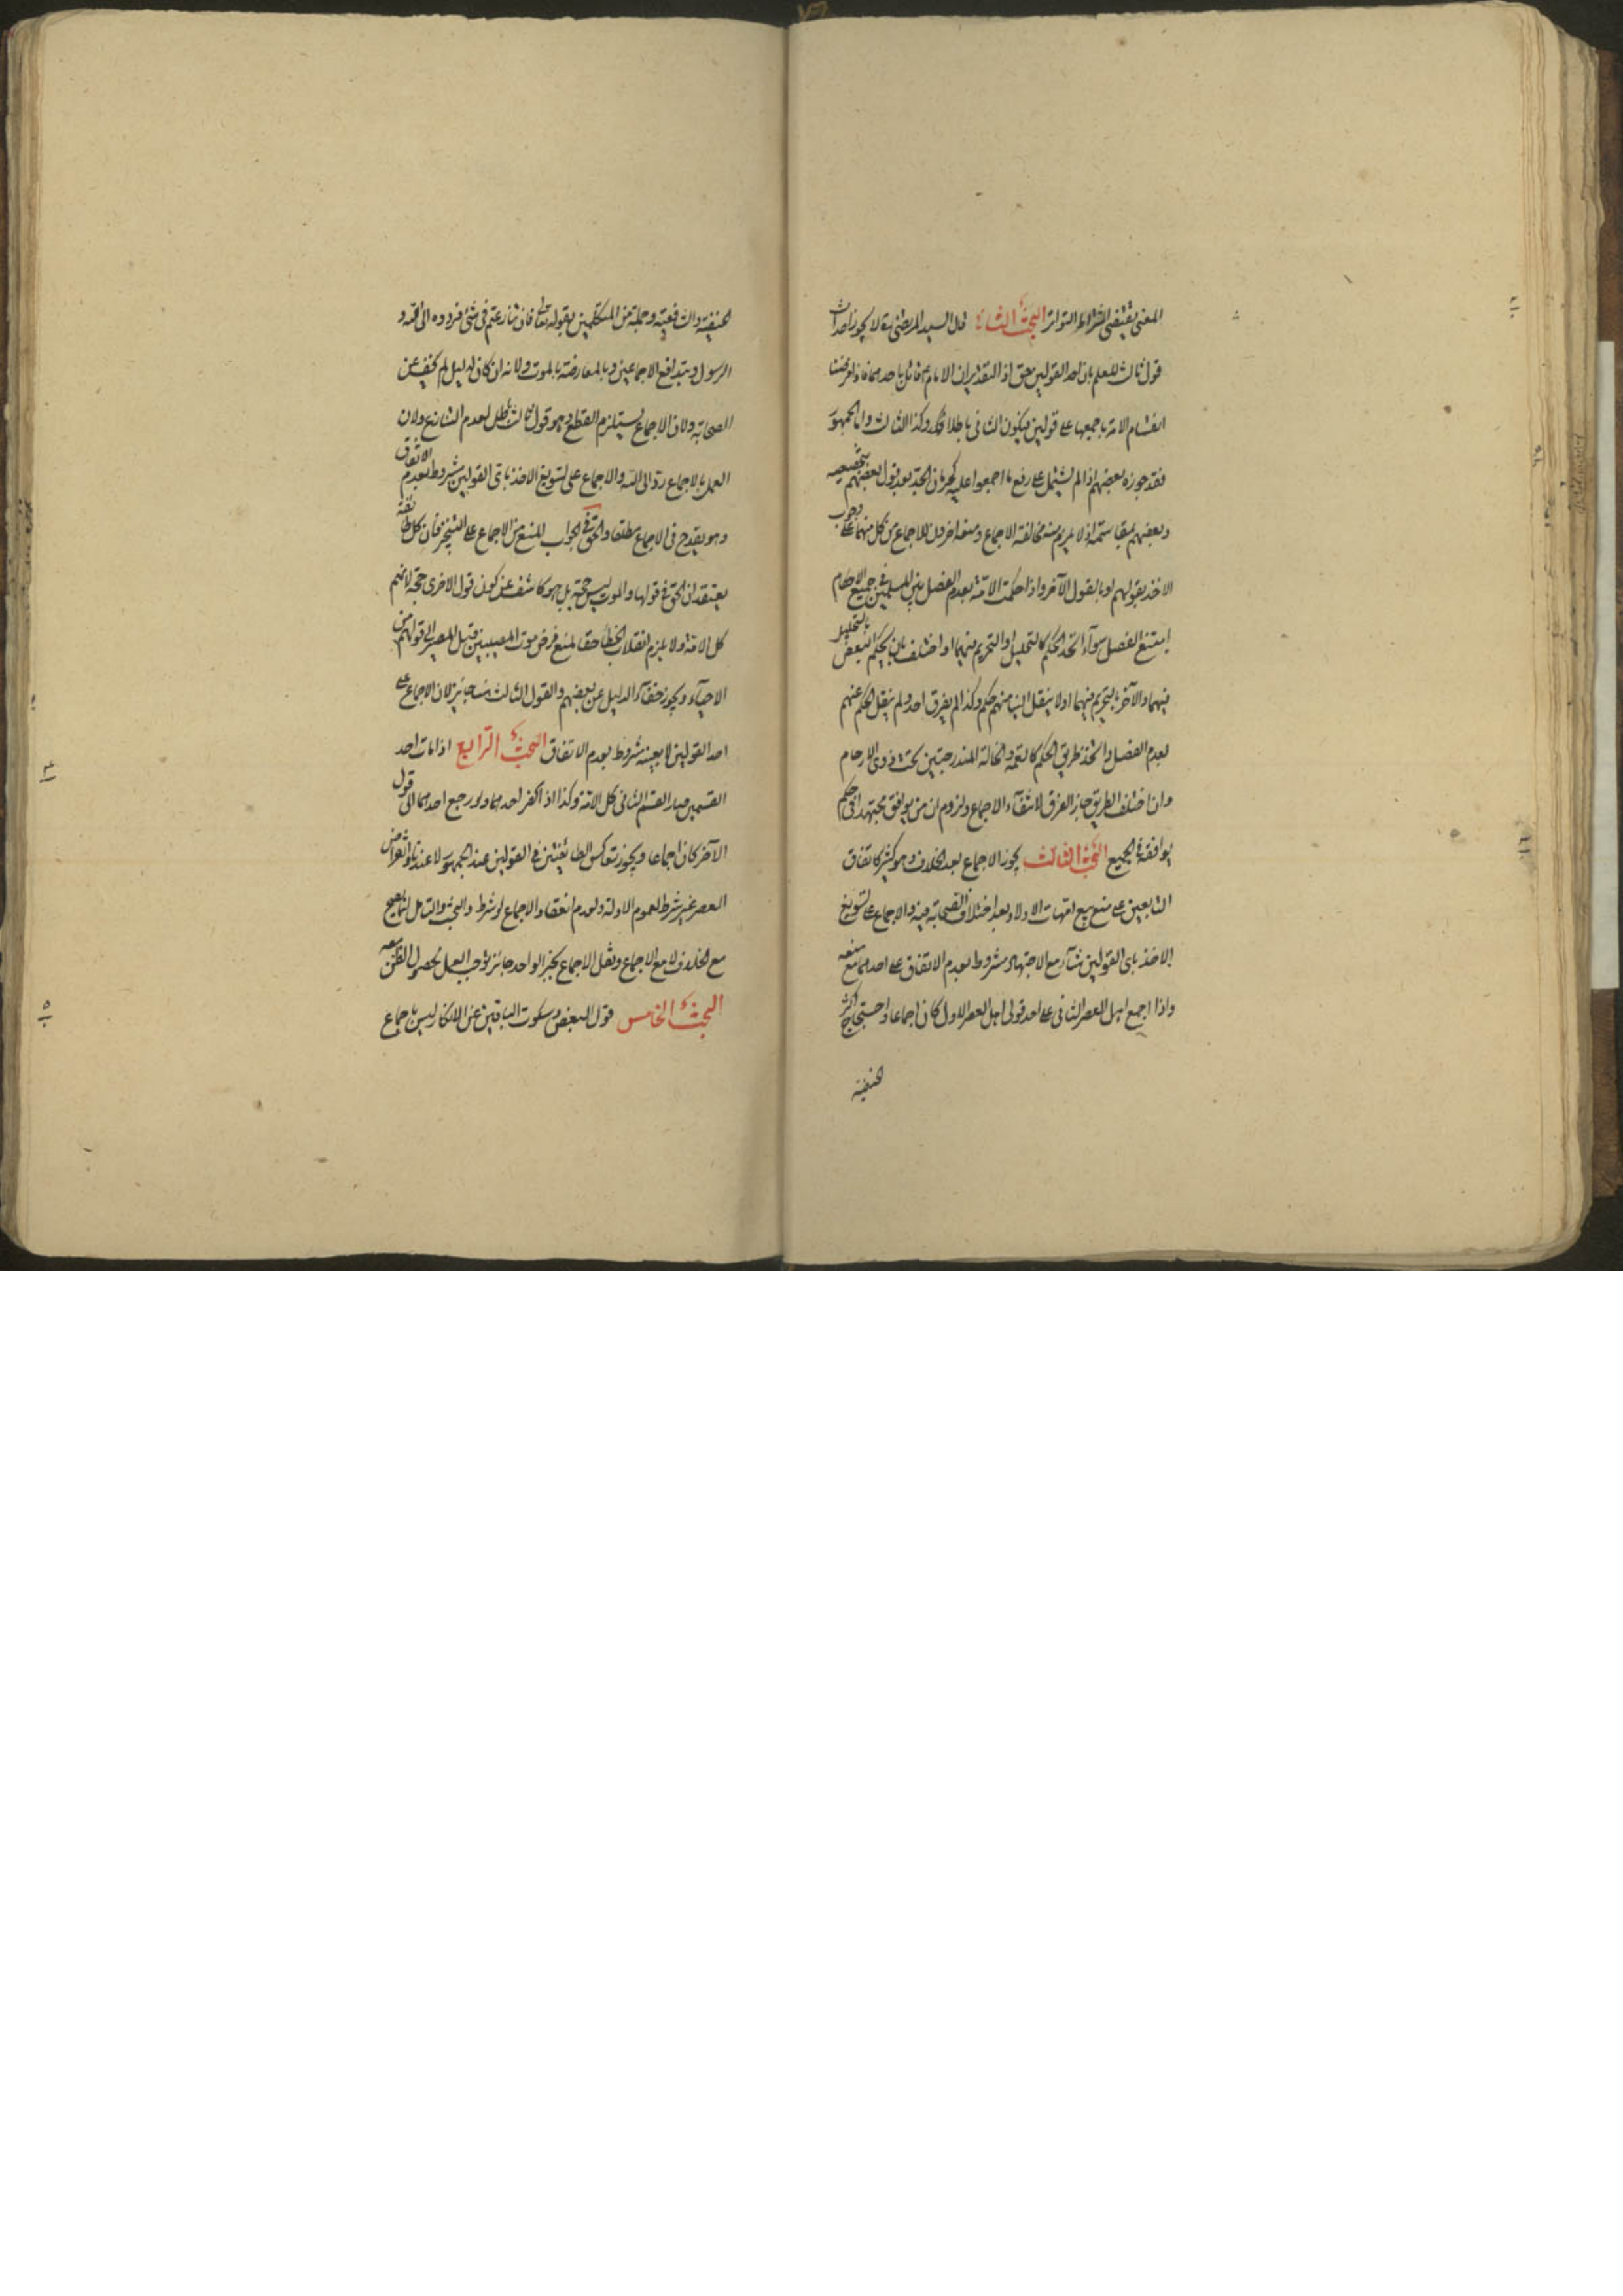 المعنى يقتضى اشتراط التواتر البحث الثانى قال السيد المرتضى لا يجوز احداث
قول ثالث للعلم بان احد القولين حق اذ التقدير ان الامام قائل باحدهما فاذا فرضنا
انقسام الامة باجمعها على قولين فيكون الثانى باطلا وكذا الثالث واما الجمهور
فقد جوزه بعضهم اذا لم يشتمل على رفع ما اجمعوا عليه كحرمان الجد بعد قول بعضهم
وبعضهم بمقاسمته اذ لا يلزم منه مخالفة الاجماع ومنعه اخرون للاجماع من كل منهما على وجوب
الاخذ بقولهم او بالقول الآخر واذا حكمت الامة بعدم الفصل بين المسلتين فى جميع الاحكام
امتنع الفصل سوآء اتحد الحكم كالتحليل او التحريم فيهما او اختلف بان يحكم البعض بالتحليل
فيهما والآخر بالتحريم فيهما او لا ينقل الينا منهم حكم وكذا لم يفرق احد ولم ينقل الحكم عنهم
بعدم الفصل واتحد طريق الحكم كالعمة والخالة المندرجتين تحت ذوى الارحام
وان اختلف الطريق جاز الفرق لانتفآء الاجماع ولزوم ان من يوافق مجتهدا فى حكم
يوافقه فى الجميع البحث الثالث يجوز الاجماع بعد الخلاف وهو كثير كاتفاق
التابعين على منع بيع امهات الاولاد بعد اختلاف الصحابة فيه والاجماع على تسويغ
الاخذ باى القولين شآء مع الاجتهاد مشروط بعدم الاتفاق على احدهما مع منعه
واذا اجمع اهل العصر الثانى على احد قولى اهل العصر الاول كان اجماعا واحتجاج اكثر
الحنفية
الحنفية والشافعية وجملة من المتكلمين بقوله تعالى فان تنازعتم فى شئ فردوه الى الله و
الرسول وبتدافع الاجماعين وبالمعارضة بالموت ولانه ان كان لدليل لم يخف عن
الصحابة ولان الاجماع يستلزم القطع وهو قول ثالث باطل لعدم التنازع ولان
العمل بالاجماع رد الى الله والاجماع على تسويغ الاخذ باى القولين مشروط بعدم الاتفاق
وهو يقدح فى الاجماع مطلقا والحق فى الجواب المنع من الاجماع على التخيير فان كل طائفة
يعتقد ان الحق فى قولها والموت ليس حجة بل هو كاشف عن كون قول الاخرى حجة لانهم
كل الامة ولا يلزم انقلاب الخطا حقا لمنع فرض موت المصيبين قبل المصير الى قولهم من
الاحيآء ويجوز خفآء الدليل عن بعضهم والقول الثالث هنا جائز لان الاجماع على
احد القولين لا بعينه مشروط بعدم الاتفاق البحث الرابع اذا مات احد
القسمين صار القسم الثانى كل الامة وكذا اذا كفر احدهما ولو رجع احدهما الى قول
الآخر كان اجماعا ويجوز تعاكس الطائفتين فى القولين عند الجمهور لا عندنا وانقراض
العصر غير شرط لعموم الادلة ولعدم انعقاد الاجماع لو شرط والبحث والتامل انما يصح
مع الخلاف لا مع الاجماع ونقل الاجماع بخبر الواحد جائز يوجب العمل لحصول الظن معه
البحث الخامس قول البعض وسكوت الباقين عن الانكار ليس باجماع